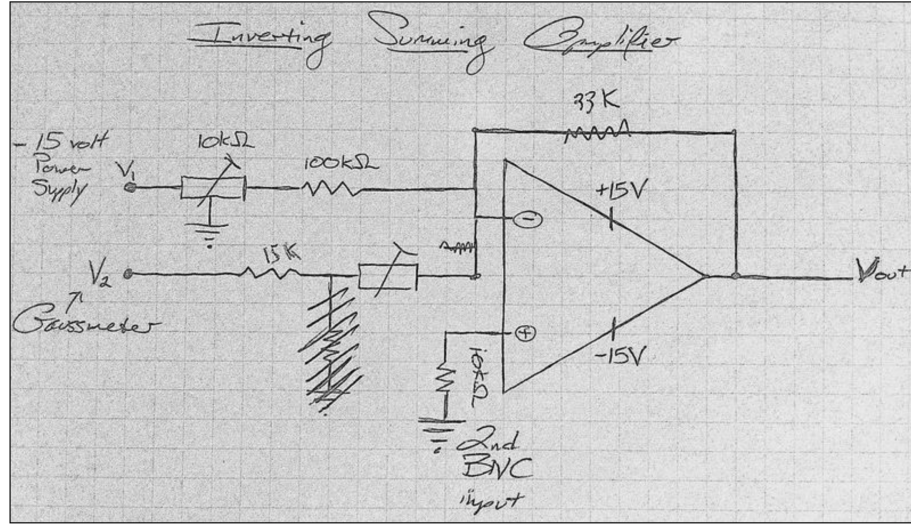 Inverting Summing Amplifier
33K
-15 volt
Power
Supply
V1
10kΩ
100kΩ
+15V
−
15K
V2
Vout
Gaussmeter
+
-15V
10kΩ
2nd
BNC
input